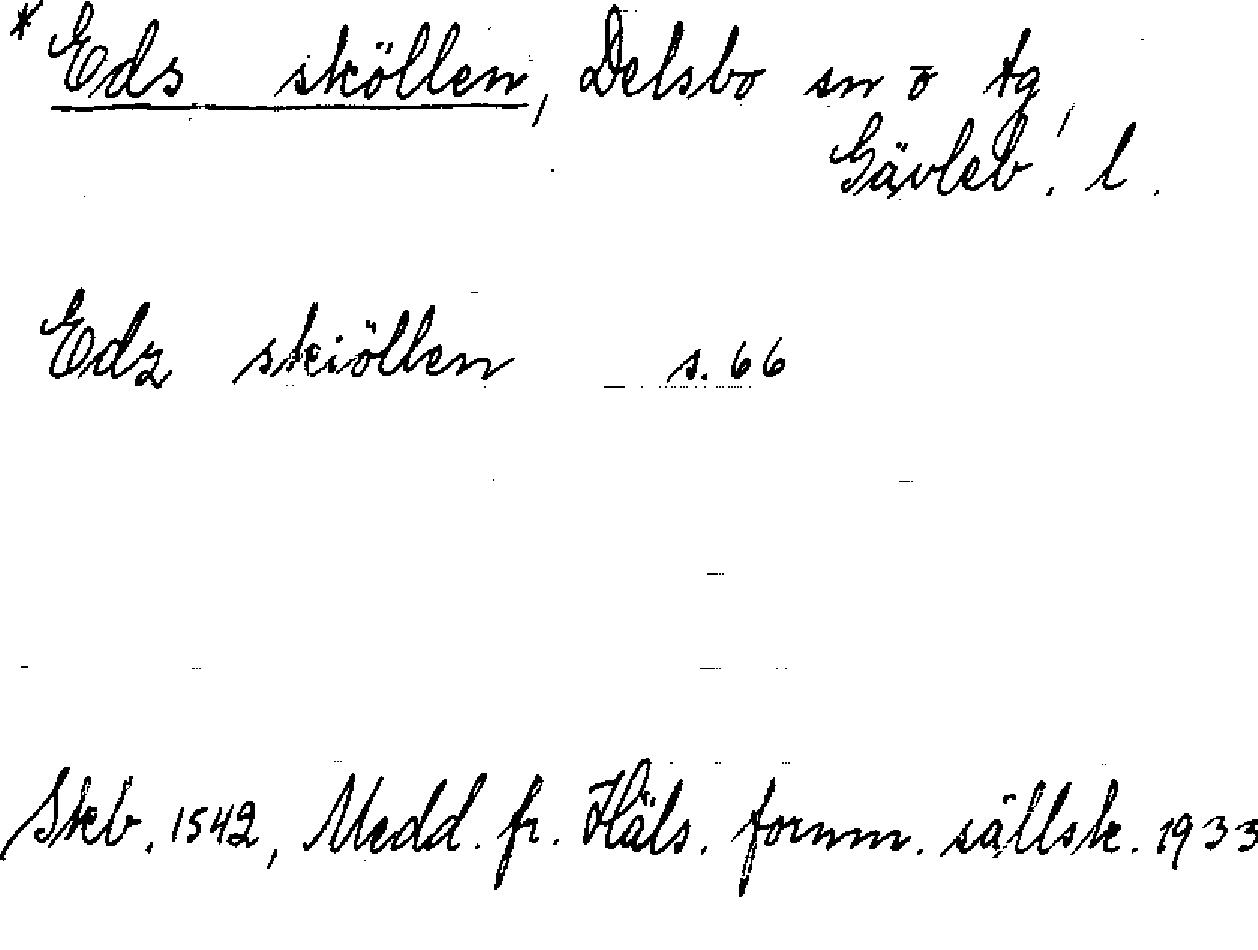 *Eds sköllen, Delsbo sn o tg,
Gävleb. l.
Edz skiöllen s. 66
Skb. 1542, Medd. fr. Häls. fornm. sällsk. 1933